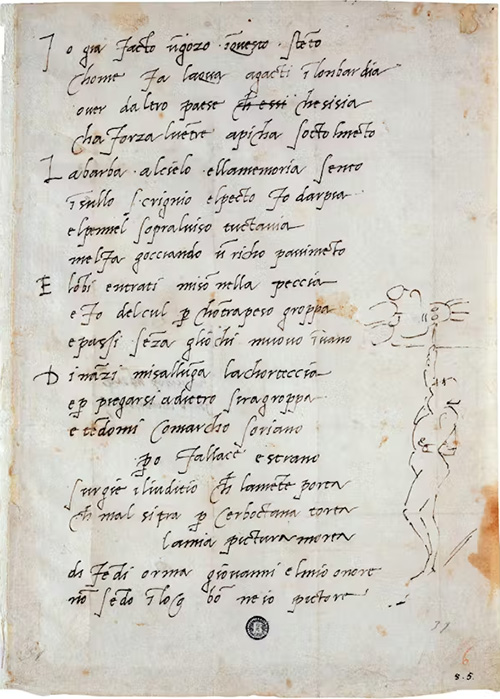 I o gia facto ūgozo īquesto stēto
chome fa laqua agacti ī lombardia
over daltro paese ch essi chesisia
cha forza luētre apicha socto lmēto
La barba alcielo ella memoria sento
ī sullo scrignio elpecto fo darpia
elpennel sopraluiso tuctauia
melfa gocciando ū richo pauimēto
E lōbi entrati misō nella peccia
e fo delcul p chōtrapeso groppa
e passi sēza gliochi muouo īuano
Dināzi misallūga lachorteccia
e p piegarsi adietro siragroppa
e tēdomi comarcho soriano
po fallace e strano
surgie iliuditio ch lamēte porta
ch mal si tra p cerboctana torta
lamia pictura morta
difedi orma giovanni elmio onore
nō sēdo ī loco bō ne io pictore
8. 5.